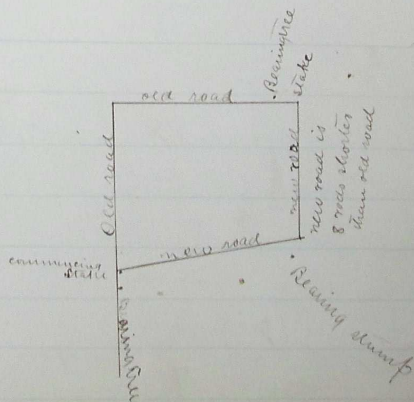 old road
Bearing tree
stake
Old road
new road
new road is
8 rods shorter
than old road
new road
commencing
stake
Bearing tree
Bearing stump